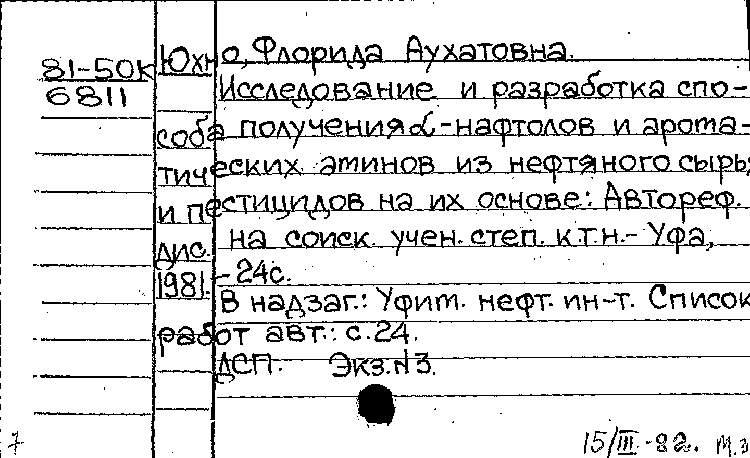 81-50к Юхно, Флорида Аухатовна.
6811 Исследование и разработка спо-
соба получения α-нафтолов и арома-
тических аминов из нефтяного сырья
и пестицидов на их основе: Автореф.
дис. на соиск. учен. степ. к.т.н.- Уфа,
1981.- 24с.
В надзаг.: Уфим. нефт. ин-т. Список
работ авт.: с.24.
ДСП. Экз.N3.
7 15/III-82. М.З